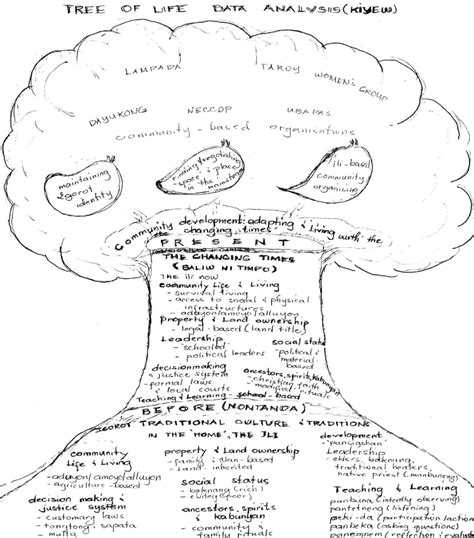 TREE OF LIFE DATA ANALYSIS (KIYEW)
LAMPADA
TAROY WOMEN'S GROUP
DAYUKONG
NECCDP
UBAPAS
community-based organisations
maintaining
Igorot
identity
finding & negotiating
space & place
in the
ili-based
community
organising
community development: adapting & living with the
changing times
PRESENT
THE CHANGING TIMES
(BALIW NI TIMPO)
The ili now
community Life & Living
- survival living
- access to social & physical
infrastructures
- adoyon/amoyo/alluyon
Property & Land ownership
- legal-based (land title)
Leadership
- schooled
- political leaders
social status
- political &
material-
based
decisionmaking
& justice system
- formal laws
& local courts
ancestors, spirits, kabunyan
- christian faith
- modified rituals
Teaching & Learning - school-based
BEFORE (NONTANDA)
IGOROT TRADITIONAL CULTURE & TRADITIONS
IN THE 'HOME', THE ILI
community
Life & Living
- aduyon/amoyo/alluyon
- agriculture-based
decision making &
justice system
- customary laws
- tongtong, sapata
property & Land ownership
- family & clan-based
- land inherited
social status
- batenang (rich)
ancestors, spirits
& kabunyan
- community &
family rituals
development
Leadership
- elders,
traditional leaders,
native priest (manbunong)
Teaching & Learning
panbiina (intently observing)
pantetneng (listening)
peki-da (participation/action)
panbeka (asking questions)